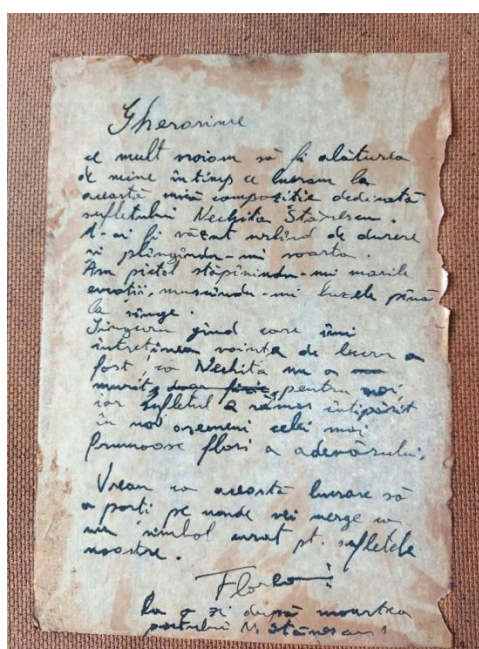 Gherasime
ce mult voiam să fii alăturea
de mine întimp ce lucram la
această mică compoziție dedicată
sufletului Nechita Stănescu.
M-ai fi văzut urlînd de durere
și plîngîndu-mi soarta.
Am pictat stăpînindu-mi marile
emoții, mușcîndu-mi buzele pînă
la sînge.
Singuru gînd care îmi
întreținea voința de lucru a
fost, că Nechita nu a
murit, doar fizic, pentru noi
iar sufletul a rămas întipărit
în noi asemeni celei mai
frumoase flori a adevărului.
Vreau ca această lucrare să
o porți pe unde vei merge ca
un simbol curat pt. sufletele
noastre.
La o zi după moartea
poetului N. Stănescu!